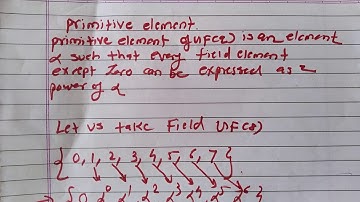 Primitive element
primitive element of GF(2) is an element
α such that every field element
except zero can be expressed as a
power of α
Let us take Field GF(8)
{ 0, 1, 2, 3, 4, 5, 6, 7 }
→ { 0, α⁰ α¹ α² α³ α⁴ α⁵ α⁶ }